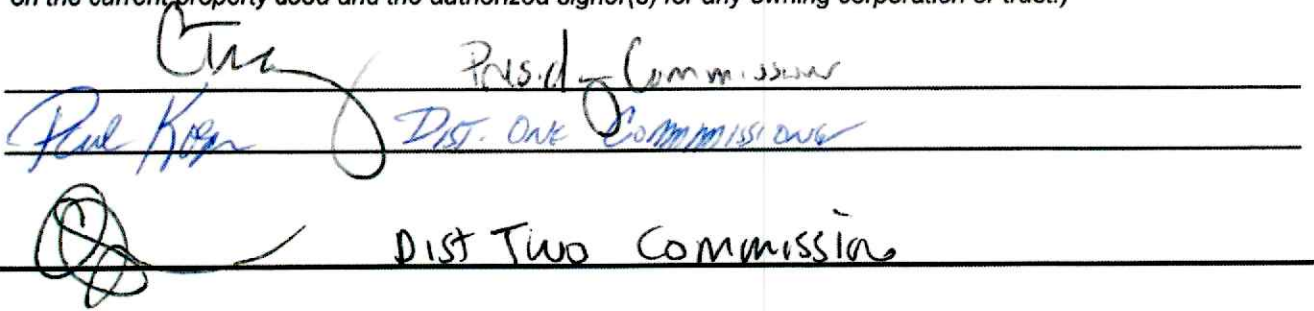 on the current property deed and the authorized signer(s) for any owning corporation or trust.)
Commissioner
Paul Dist. One Commmissioner
Dist Two Commission